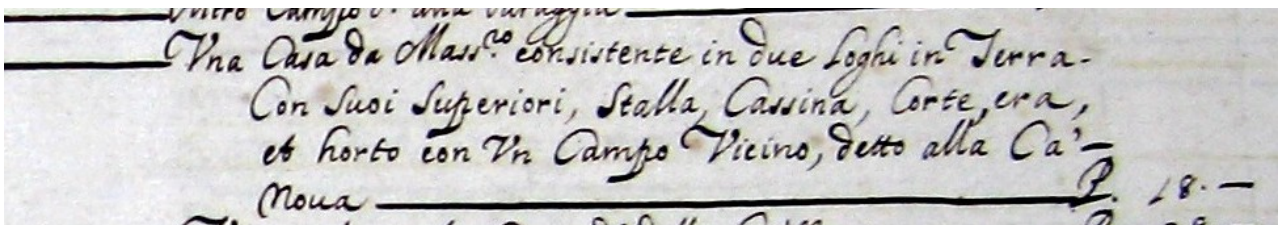 Altro Campo d.º alla Baraggia
Vna Casa da Mass.ro consistente in due Loghi in Terra-
Con Suoi Superiori, Stalla, Cassina, Corte, era,
et horto con Vn Campo Vicino, detto alla Ca'-
Noua P. 18.-